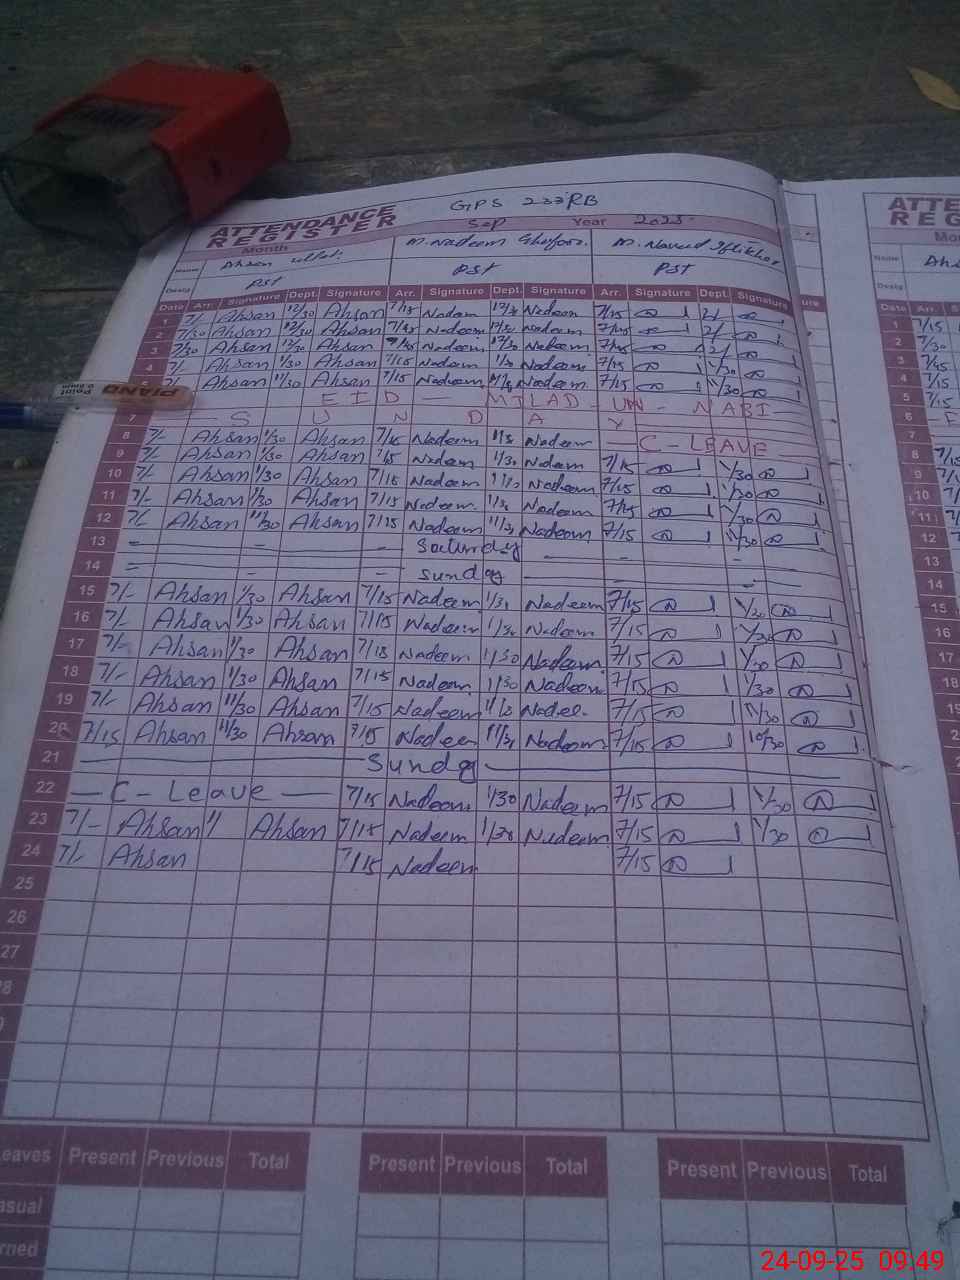 GPS 233 RB
ATTENDANCE REGISTER
Month Sep Year 2025
Name Ahsan Ullah M. Nadeem Ghafoor. M. Naveed Iftikhar
Desig PST PST PST
Date Arr. Signature Dept. Signature Arr. Signature Dept. Signature Arr. Signature Dept. Signature
1 7/- Ahsan 12/30 Ahsan 7/15 Nadeem Nadeem 7/15 2/
2 7/30 Ahsan 12/30 Ahsan 7/45 Nadeem 12/30 Nadeem 7/45 2/
3 7/30 Ahsan 12/30 Ahsan 7/45 Nadeem 12/30 Nadeem 7/45 2/
4 7/- Ahsan 1/30 Ahsan 7/15 Nadeem 1/30 Nadeem 7/15 1/30
5 7/- Ahsan 11/30 Ahsan 7/15 Nadeem Nadeem 7/15 11/30
EID — MILAD - UN - NABI
7 — S U N D A Y
8 7/- Ahsan 1/30 Ahsan 7/15 Nadeem 1/30 Nadeem — C - LEAVE —
9 7/- Ahsan 1/30 Ahsan 7/15 Nadeem 1/30 Nadeem 7/15 1/30
10 7/- Ahsan 1/30 Ahsan 7/15 Nadeem 1/30 Nadeem 7/15 1/30
11 7/- Ahsan 1/30 Ahsan 7/15 Nadeem 1/30 Nadeem 7/15 1/30
12 7/- Ahsan 11/30 Ahsan 7/15 Nadeem 11/30 Nadeem 7/15 11/30
13 Saturday
14 Sunday
15 7/- Ahsan 1/30 Ahsan 7/15 Nadeem 1/30 Nadeem 7/15 1/30
16 7/- Ahsan 1/30 Ahsan 7/15 Nadeem 1/30 Nadeem 7/15 1/30
17 7/- Ahsan 1/30 Ahsan 7/15 Nadeem 1/30 Nadeem 7/15 1/30
18 7/- Ahsan 1/30 Ahsan 7/15 Nadeem 1/30 Nadeem 7/15 1/30
19 7/- Ahsan 11/30 Ahsan 7/15 Nadeem Nadee. 7/15 11/30
20 7/15 Ahsan 11/30 Ahsan 7/15 Nadeem 11/30 Nadeem 7/15 10/30
21 Sunday
22 — C - Leave — 7/15 Nadeem 1/30 Nadeem 7/15 1/30
23 7/- Ahsan 1/ Ahsan 7/15 Nadeem 1/30 Nadeem 7/15 1/30
24 7/- Ahsan 7/15 Nadeem 7/15
25
26
27
Leaves Present Previous Total Present Previous Total Present Previous Total
PIANO
Point
24-09-25 09:49